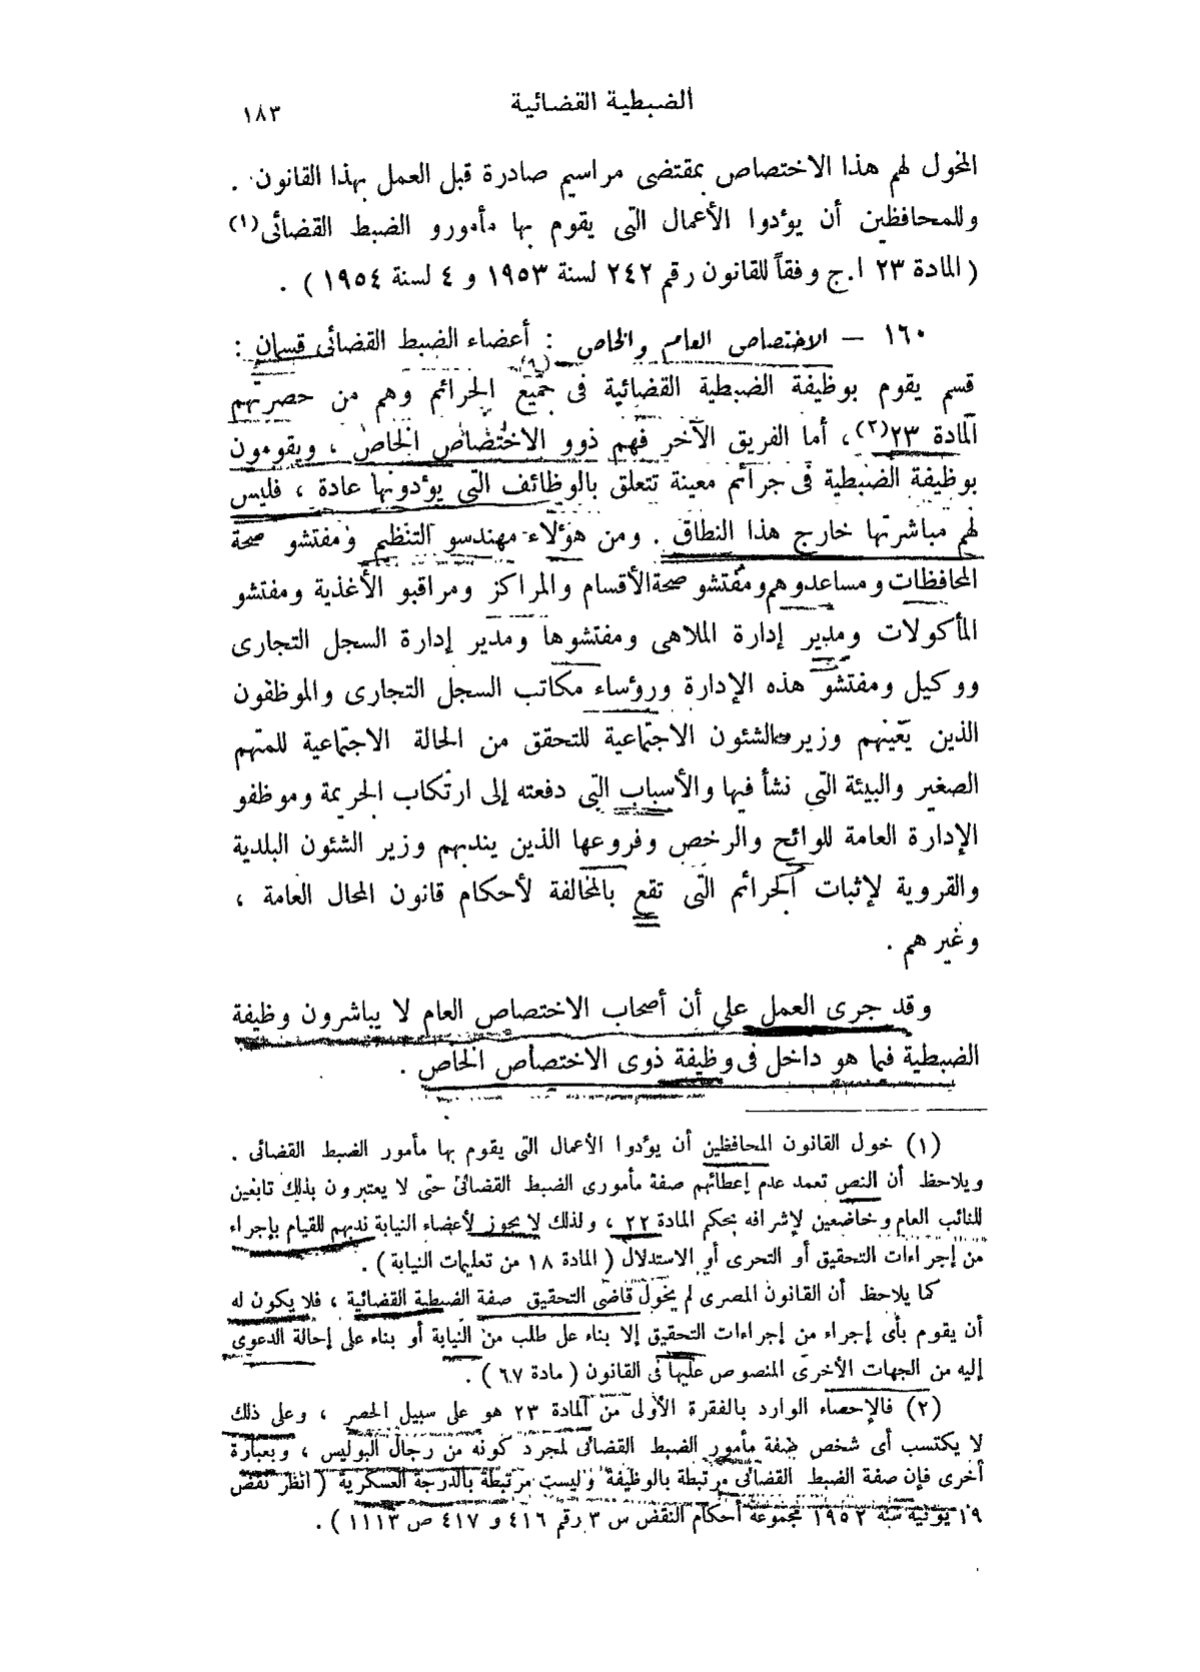 الضبطية القضائية
١٨٣
المخول لهم هذا الاختصاص بمقتضى مراسيم صادرة قبل العمل بهذا القانون .
وللمحافظين أن يؤدوا الأعمال التى يقوم بها مأمورو الضبط القضائى(١)
( المادة ٢٣ ا.ج وفقاً للقانون رقم ٢٤٢ لسنة ١٩٥٣ و ٤ لسنة ١٩٥٤ ) .
١٦٠ — الاختصاص العام والخاص : أعضاء الضبط القضائى قسمان :
قسم يقوم بوظيفة الضبطية القضائية فى جميع الجرائم وهم من حصرتهم
المادة ٢٣(٢)، أما الفريق الآخر فهم ذوو الاختصاص الخاص ، ويقومون
بوظيفة الضبطية فى جرائم معينة تتعلق بالوظائف التى يؤدونها عادة ، فليس
لهم مباشرتها خارج هذا النطاق . ومن هؤلاء مهندسو التنظيم ومفتشو صحة
المحافظات ومساعدوهم ومفتشو صحة الأقسام والمراكز ومراقبو الأغذية ومفتشو
المأكولات ومدير إدارة الملاهى ومفتشوها ومدير إدارة السجل التجارى
ووكيل ومفتشو هذه الإدارة ورؤساء مكاتب السجل التجارى والموظفون
الذين يعينهم وزير الشئون الاجتماعية للتحقق من الحالة الاجتماعية للمتهم
الصغير والبيئة التى نشأ فيها والأسباب التى دفعته إلى ارتكاب الجريمة وموظفو
الإدارة العامة للوائح والرخص وفروعها الذين يندبهم وزير الشئون البلدية
والقروية لإثبات الجرائم التى تقع بالمخالفة لأحكام قانون المحال العامة ،
وغيرهم .
وقد جرى العمل على أن أصحاب الاختصاص العام لا يباشرون وظيفة
الضبطية فيما هو داخل فى وظيفة ذوى الاختصاص الخاص .
(١) خول القانون المحافظين أن يؤدوا الأعمال التى يقوم بها مأمور الضبط القضائى .
ويلاحظ أن النص تعمد عدم إعطائهم صفة مأمورى الضبط القضائى حتى لا يعتبرون بذلك تابعين
للنائب العام وخاضعين لإشرافه بحكم المادة ٢٢ ، ولذلك لا يجوز لأعضاء النيابة ندبهم للقيام بإجراء
من إجراءات التحقيق أو التحرى أو الاستدلال ( المادة ١٨ من تعليمات النيابة ) .
كما يلاحظ أن القانون المصرى لم يخول قاضى التحقيق صفة الضبطية القضائية ، فلا يكون له
أن يقوم بأى إجراء من إجراءات التحقيق إلا بناء على طلب من النيابة أو بناء على إحالة الدعوى
إليه من الجهات الأخرى المنصوص عليها فى القانون ( مادة ٦٧ ) .
(٢) فالإحصاء الوارد بالفقرة الأولى من المادة ٢٣ هو على سبيل الحصر ، وعلى ذلك
لا يكتسب أى شخص صفة مأمور الضبط القضائى لمجرد كونه من رجال البوليس ، وبعبارة
أخرى فإن صفة الضبط القضائى مرتبطة بالوظيفة وليست مرتبطة بالدرجة العسكرية ( انظر نقض
١٩ يونية سنة ١٩٥٢ مجموعة أحكام النقض س ٣ رقم ٤١٦ و ٤١٧ ص ١١١٣ ) .